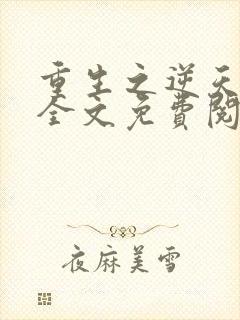 重生之逆天
全文免費閱
夜麻美雪